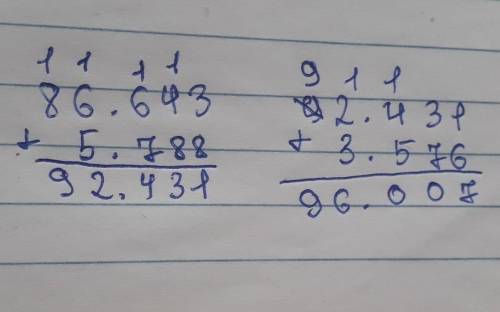 1 1 1 1
86.643
+ 5.788
92.431
9 1 1
2.431
+ 3.576
96.007